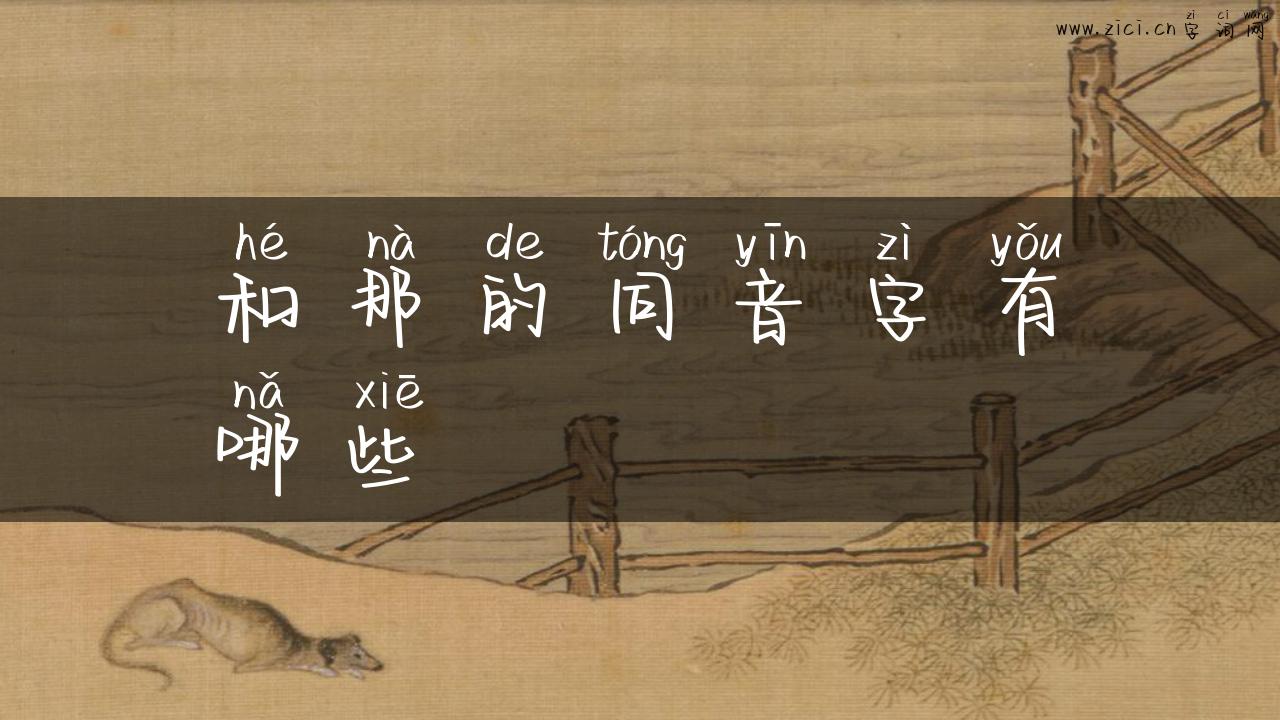 zi ci wang
www.zici.cn 字词网
hé nà de tóng yīn zì yǒu
和那的同音字有
nǎ xiē
哪些